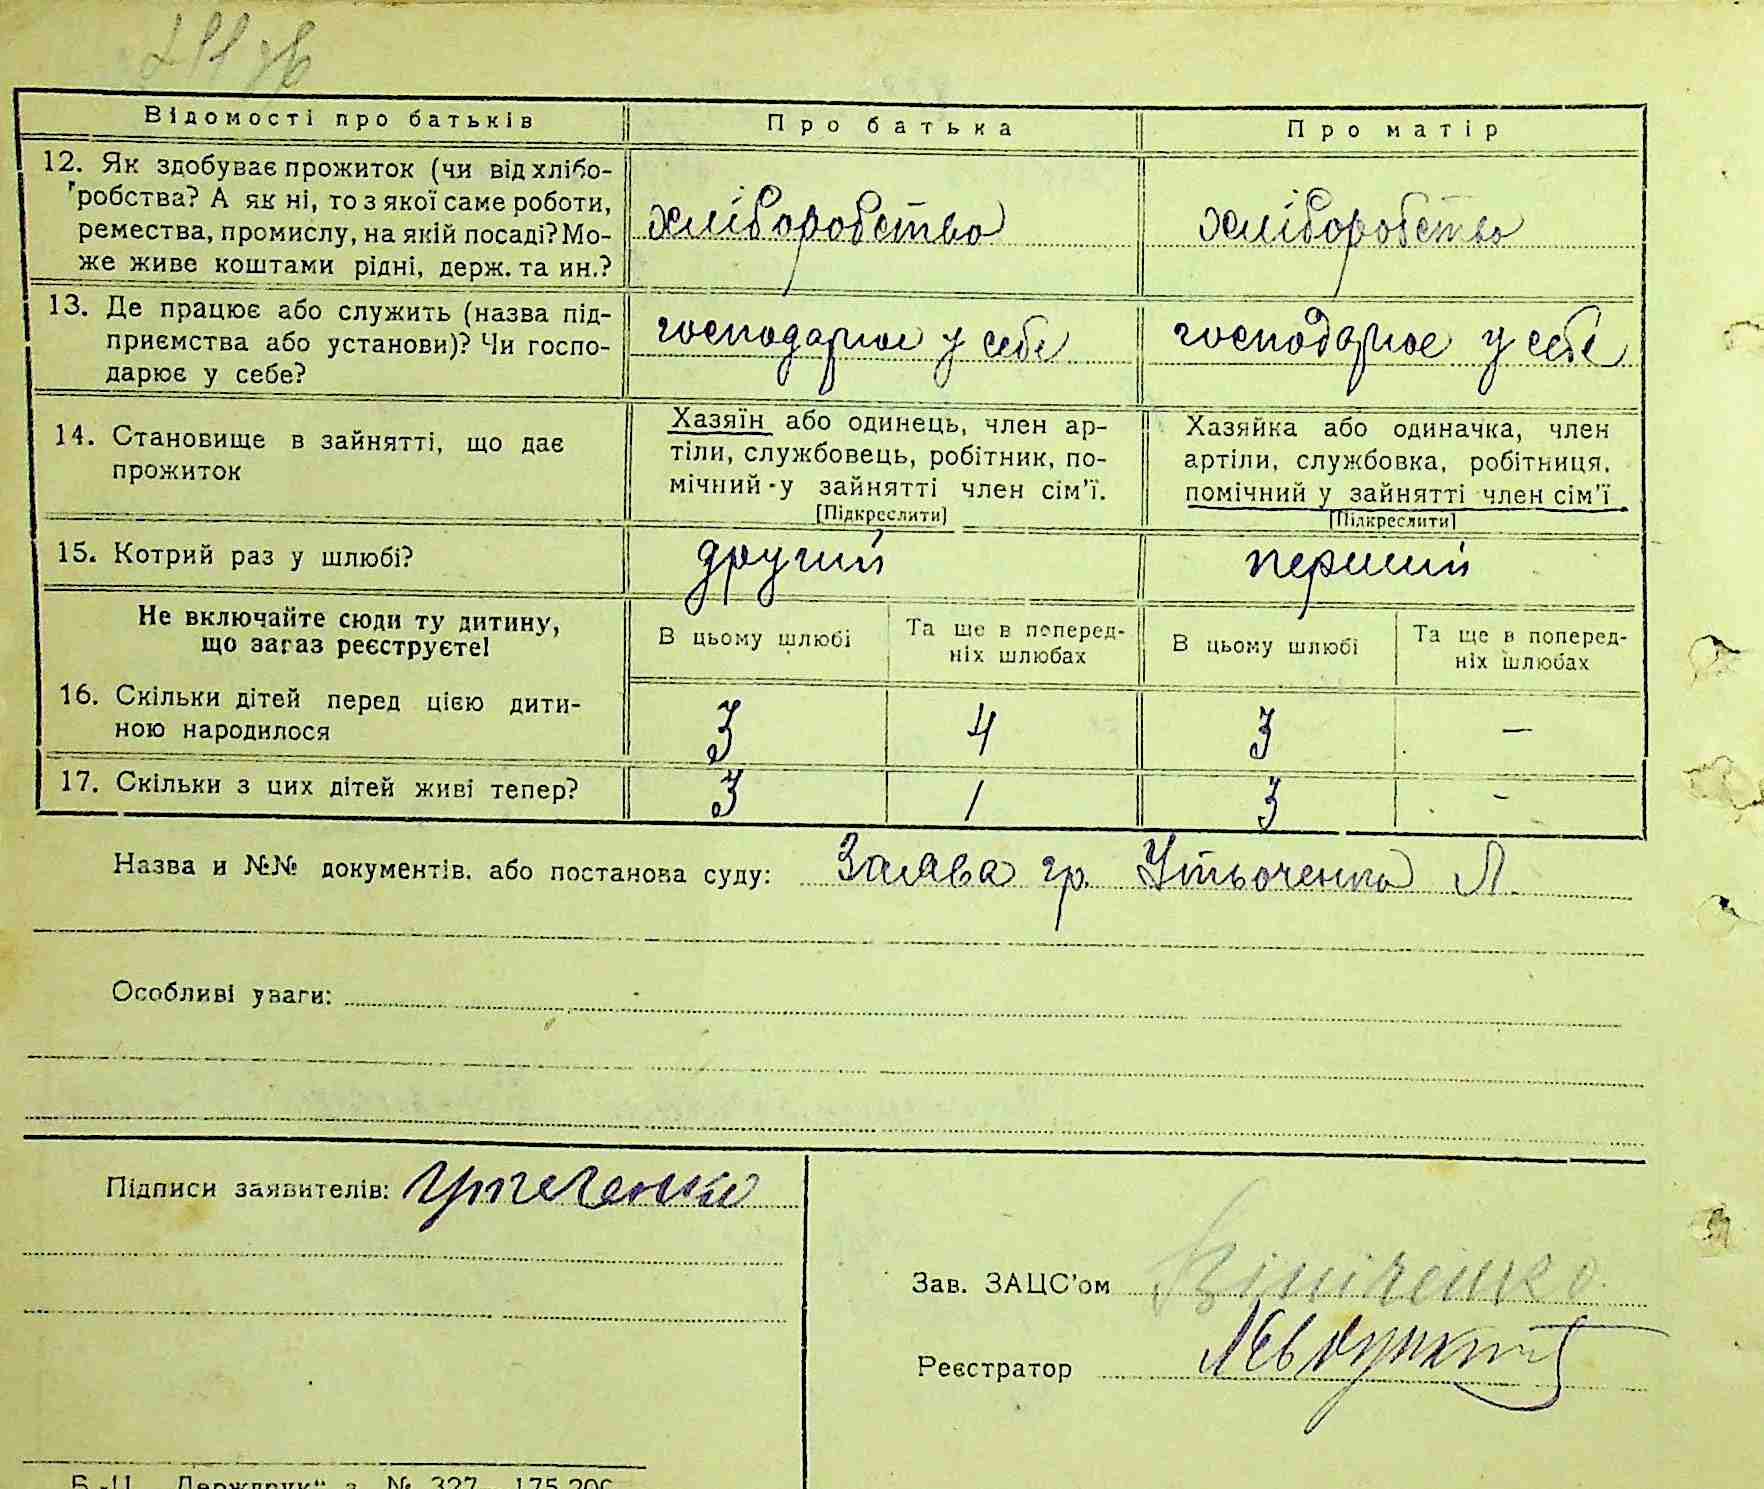 244 зв
Відомості про батьків
Про батька
Про матір
12. Як здобуває прожиток (чи від хлібо-
робства? А як ні, то з якої саме роботи,
ремества, промислу, на якій посаді? Мо-
же живе коштами рідні, держ. та ин.?
хліборобство
хліборобство
13. Де працює або служить (назва під-
приємства або установи)? Чи госпо-
дарює у себе?
господарює у себе
господарює у себе
14. Становище в зайнятті, що дає
прожиток
Хазяїн або одинець, член ар-
тіли, службовець, робітник, по-
мічний у зайнятті член сім'ї.
[Підкреслити]
Хазяйка або одиначка, член
артіли, службовка, робітниця,
помічний у зайнятті член сім'ї
[Підкреслити]
15. Котрий раз у шлюбі?
другий
перший
Не включайте сюди ту дитину,
що зараз реєструєте!
В цьому шлюбі
Та ще в поперед-
ніх шлюбах
В цьому шлюбі
Та ще в поперед-
ніх шлюбах
16. Скільки дітей перед цією дити-
ною народилося
3
4
3
—
17. Скільки з цих дітей живі тепер?
3
1
3
-
Назва и №№ документів, або постанова суду: Заява гр. Утьоченка Л.
Особливі уваги:
Підписи заявителів:
Зав. ЗАЦС'ом
Реєстратор
Б.-Ц. „Держдрук“ з. № 327—175.200